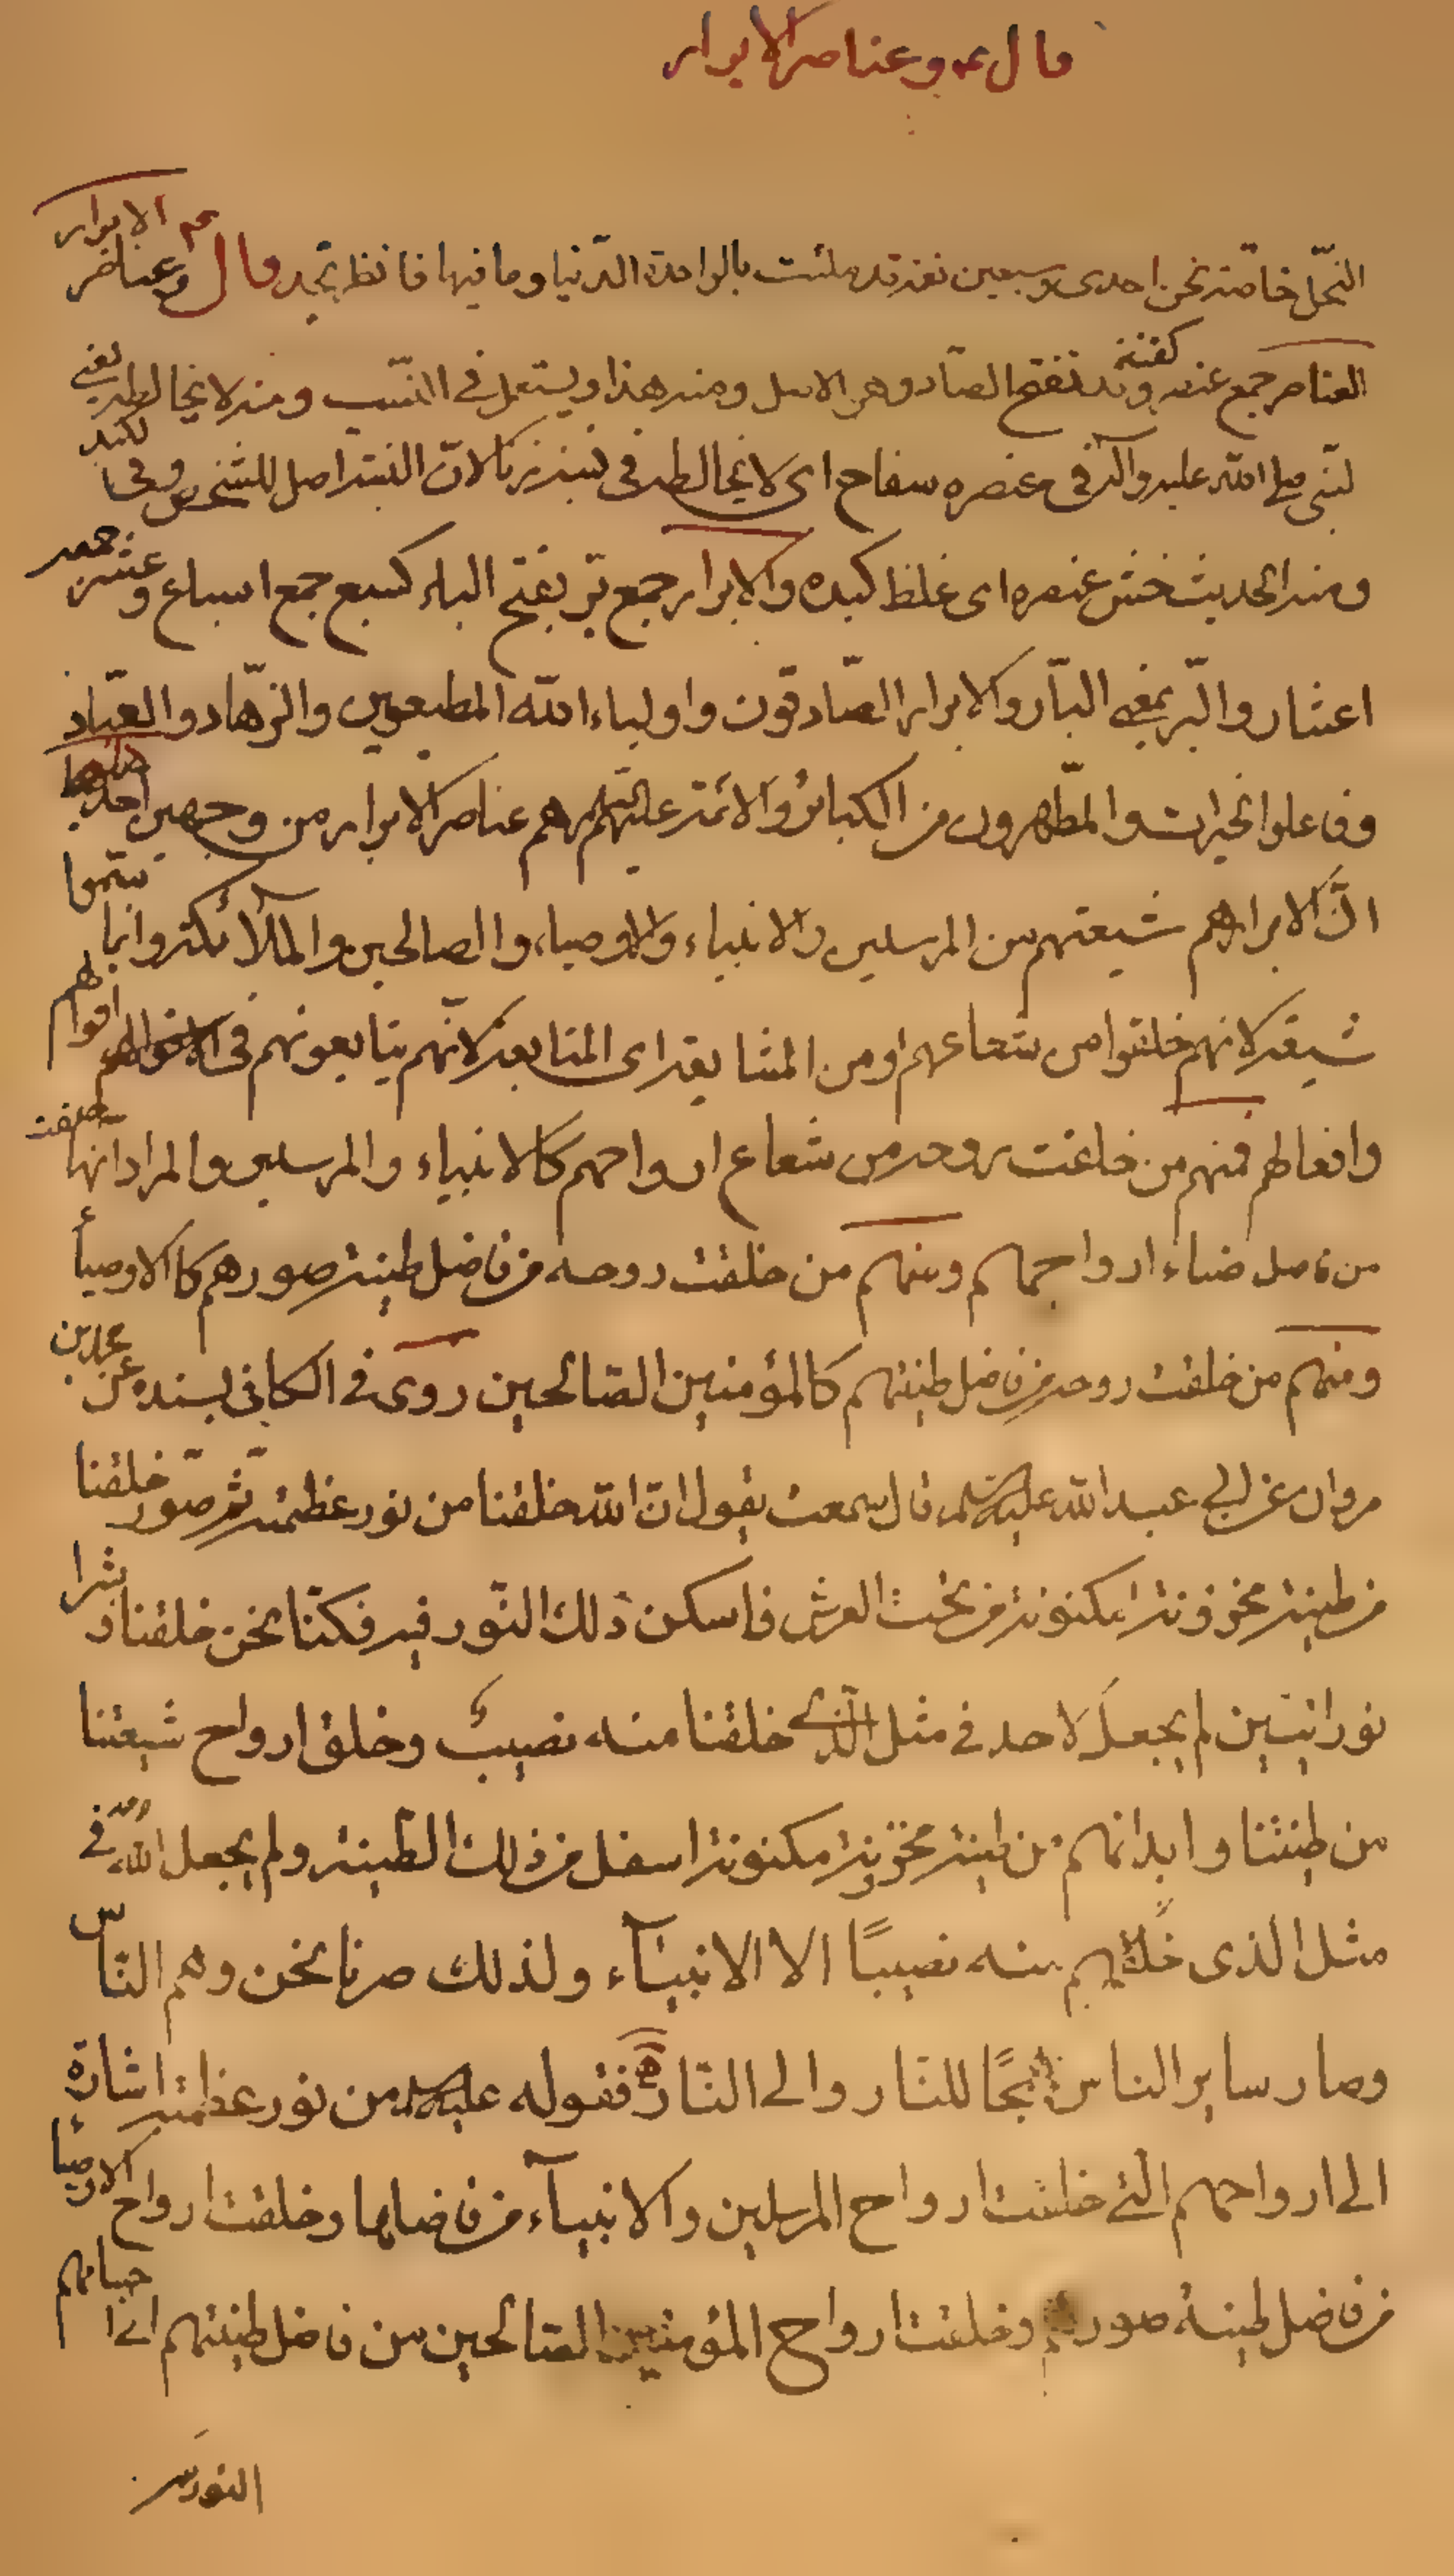 قال ع وعناصر الابرار
النحل خاصة نحن احدى وسبعين نفر قد ملئت بالواحدة الدنيا وما فيها فانظر تجد قال عم وعناصر الابرار
العناصر جمع عنصر كقنفذ وقد تفتح الصاد وهو الاصل ومنه هذا ويستعمل في النسب ومنه لا يخالطه يعني
النبي صلى الله عليه وآله في عنصره سفاح اى لا يخالطه في نسبه زنا لان النسب اصل للشخص وفي الكبد
ومنه الحديث خشن عنصره اى غلظ كبده والابرار جمع بر بفتح الباء كسبع جمع اسباع وعشر جمعه
اعشار والبر بمعنى البار والابرار الصادقون واولياء الله المطيعون والزهاد والعباد
وفاعلوا الخيرات والمطهرون من الكبائر والائمة عليهم السلم هم عناصر الابرار من وجهين احدهما
ان الابرار هم شيعتهم من المرسلين والانبياء والاوصياء والصالحين والملائكة وانما سموا
شيعة لانهم خلقوا من شعاعهم او من المشايعة اى المتابعة لانهم يتابعونهم في اقوالهم
وافعالهم فمنهم من خلقت روحه من شعاع ارواحهم كالانبياء والمرسلين والمراد انها خلقت
من فاضل ضياء ارواحهم ومنهم من خلقت روحه من فاضل طينة صورهم كالاوصيآء
ومنهم من خلقت روحه من فاضل طينتهم كالمؤمنين الصالحين روى في الكافى بسنده عن محمد بن
مروان عن ابي عبد الله عليه السلم قال سمعته يقول ان الله خلقنا من نور عظمته ثم صور خلقنا
من طينة مخزونة مكنونة من تحت العرش فاسكن ذلك النور فيه فكنا نحن خلقنا وبشرا
نورانيين لم يجعل لاحد في مثل الذى خلقنا منه نصيب وخلق ارواح شيعتنا
من طينتنا وابدانهم من طينة مخزونة مكنونة اسفل من ذلك الطينة ولم يجعل الله لاحد في
مثل الذى خلقهم منه نصيبًا الا الانبيآء ولذلك صرنا نحن وهم الناس
وصار ساير الناس همجًا للنار والى النار ه فقوله عليه السلم من نور عظمته اشارة
الى ارواحهم التي خلقت ارواح المرسلين والانبيآء من فاضلها وخلقت ارواح الاوصيآء
من فاضل طينة صورهم وخلقت ارواح المؤمنين الصالحين من فاضل طينتهم اى
النور